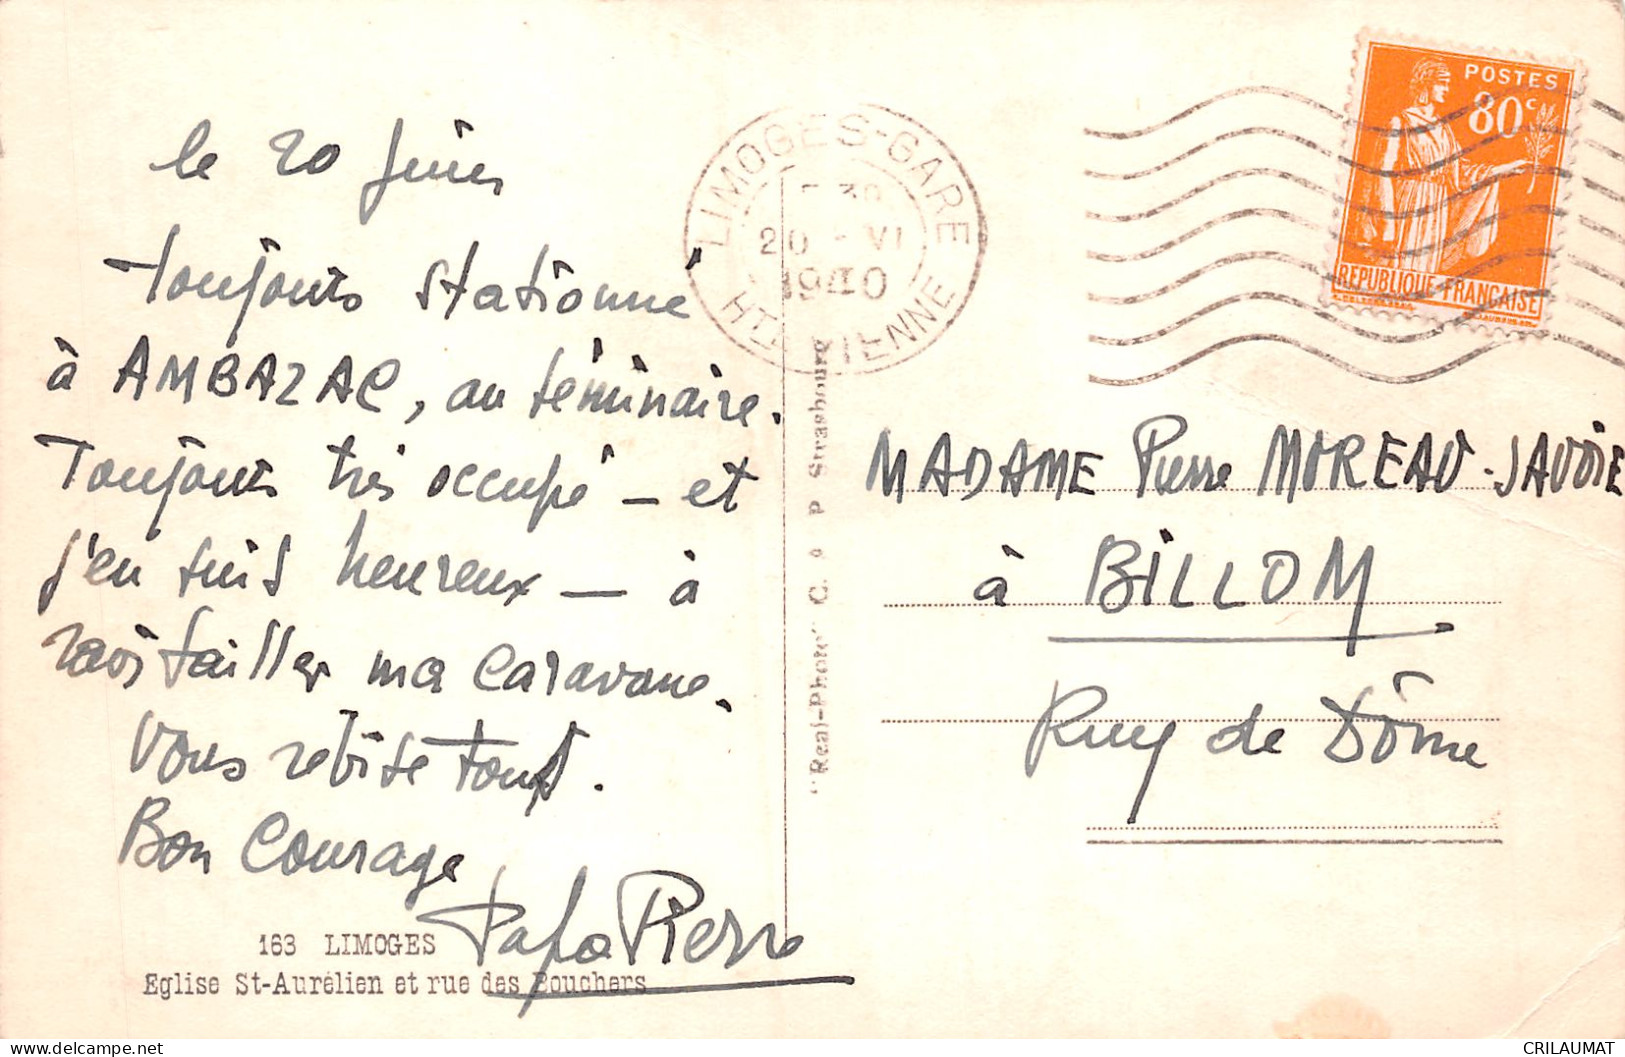 le 20 juin
Toujours stationné
à AMBAZAC, au séminaire.
Toujours très occupé — et
j'en suis heureux — à
ravitailler ma caravane.
Vous rebise tous.
Bon Courage
Papa Pierre
163 LIMOGES
Eglise St-Aurélien et rue des Bouchers
"Real-Photo" C. A P Strasbourg
LIMOGES-GARE
20 - VI
1940
HTE VIENNE
POSTES
80c
REPUBLIQUE FRANÇAISE
MADAME Pierre MOREAU-SAVOIE
à BILLOM
Puy de Dôme
delcampe.net
CRILAUMAT